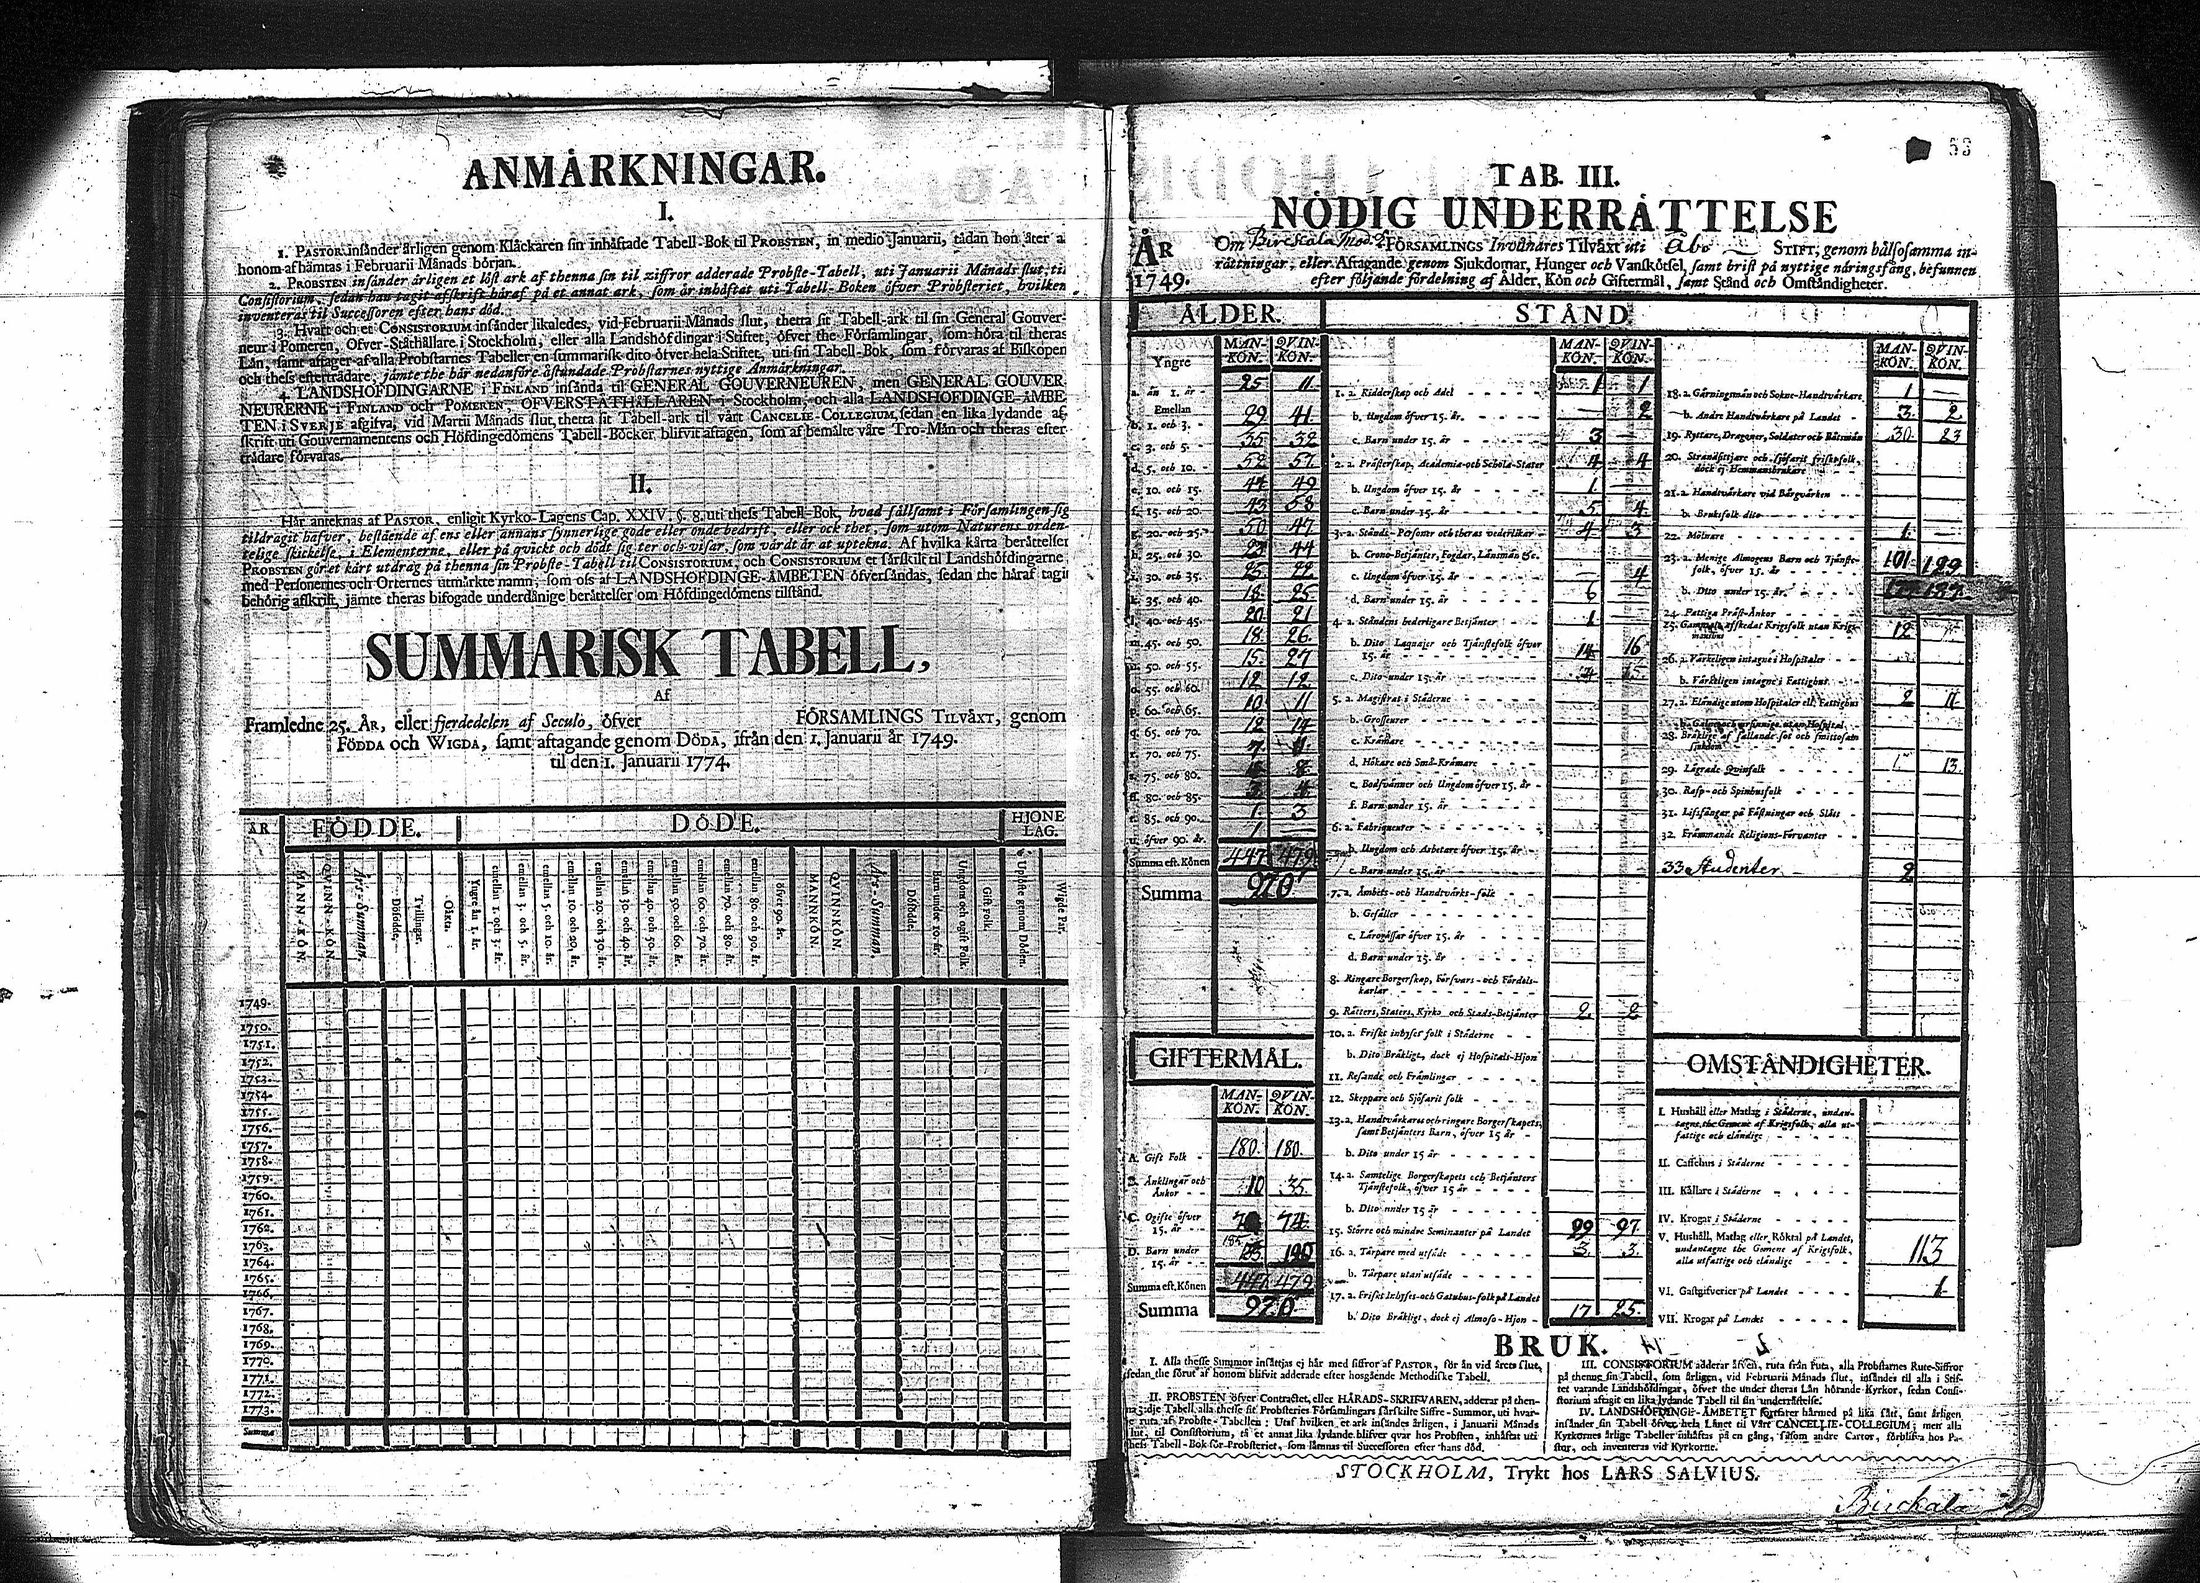 ANMÄRKNINGAR.
I.
1. PASTOR insänder årligen genom Klåckaren sin inhäftade Tabell-Bok til PROBSTEN, in medio Januarii, sådan hon åter a
honom afhämtas i Februarii Månads början.
2. PROBSTEN insänder årligen et löst ark af thenna sin til ziffror adderade Probste-Tabell, uti Januarii Månads slut, til
Consistorium, sedan han tagit afskrift häraf på et annat ark, som är inhäftat uti Tabell-Boken öfver Probsteriet, hvilken
inventeras til Successoren efter hans död.
3. Hvart och et CONSISTORIUM insänder likaledes, vid Februarii Månads slut, thetta sit Tabell-ark til sin General Gouver-
neur i Pomeren, Öfver-Ståthållare i Stockholm, eller alla Landshöfdingar i Stiftet, öfver the Församlingar, som höra til theras
Län, samt aftager af alla Probstarnes Tabeller en summarisk dito öfver hela Stiftet, uti sin Tabell-Bok, som förvaras af Biskopen
och thess efterträdare, jämte the här nedanföre åstundade Probstarnes nyttige Anmärkningar.
4. LANDSHÖFDINGARNE i FINLAND insända til GENERAL GOUVERNEUREN, men GENERAL GOUVER
NEURERNE i FINLAND och POMEREN, ÖFVERSTÅTHÅLLAREN i Stockholm, och alla LANDSHÖFDINGE-ÄMBE-
TEN i SVERJE afgifva, vid Martii Månads slut, thetta sit Tabell-ark til vårt CANCELIE-COLLEGIUM, sedan en lika lydande af-
skrift uti Gouvernamentens och Höfdingedömens Tabell-Böcker blifvit aftagen, som af bemälte våre Tro-Män och theras efter
trädare förvaras.
II.
Här anteknas af PASTOR, enligit Kyrko-Lagens Cap. XXIV. §. 8. uti thess Tabell-Bok, hvad sällsamt i Församlingen sig
tildragit hafver, bestående af ens eller annans synnerlige gode eller onde bedrift, eller ock thet, som utom Naturens orden-
telige skickelse, i Elementerne, eller på qvickt och dödt sig ter och visar, som värdt är at uptekna. Af hvilka karta berättelser
PROBSTEN gör et kårt utdrag på thenna sin Probste-Tabell til CONSISTORIUM, och CONSISTORIUM et särskilt til Landshöfdingarne,
med Personernes och Orternes utmärkte namn, som oss af LANDSHÖFDINGE-ÄMBETEN öfversändas, sedan the häraf tagit
behörig afskrift, jämte theras bifogade underdånige berättelser om Höfdingedömens tilstånd.
SUMMARISK TABELL,
Af
Framledne 25. ÅR, eller fjerdedelen af Seculo, öfver FÖRSAMLINGS TILVÄXT, genom
FÖDDA och WIGDA, samt aftagande genom DÖDA, ifrån den 1. Januarii år 1749.
til den 1. Januarii 1774.
ÅR FÖDDE. DÖDE. HJONE LAG.
MANN-KÖN. QVINN-KÖN. Års-Summan. Döfödde. Trillingar. Oäkta. Yngre än 1. år. emellan 1. och 3. år. emellan 3. och 5. år. emellan 5. och 10. år. emellan 10. och 20. år. emellan 20. och 30. år. emellan 30. och 40. år. emellan 40. och 50. år. emellan 50. och 60. år. emellan 60. och 70. år. emellan 70. och 80. år. emellan 80. och 90. år. öfver 90. år. MANNKÖN. QVINNKÖN. Års-Summan. Döfödde. Barn under 10. år. Ungdom och ogift Folk. Gift Folk. Upløste genom Döden. Wigde Par.
1749.
1750.
1751.
1752.
1753.
1754.
1755.
1756.
1757.
1758.
1759.
1760.
1761.
1762.
1763.
1764.
1765.
1766.
1767.
1768.
1769.
1770.
1771.
1772.
1773.
Summa
53
TAB. III.
NÖDIG UNDERRÄTTELSE
ÅR 1749.
Om Birckala Mod. FÖRSAMLINGS Invånares Tilväxt uti Åbo STIFT, genom hälsosamma in-
rättningar, eller Aftagande genom Sjukdomar, Hunger och Vanskötsel, samt brist på nyttige näringsfång, befunnen
efter följande fördelning af Ålder, Kön och Giftermål, samt Stånd och Omständigheter.
ÅLDER.
Yngre MAN-KÖN. QVIN-KÖN.
a. än 1. år - 25 11
Emellan
b. 1. och 3. - 29 41
c. 3. och 5. 35 32
d. 5. och 10. - 52 57
e. 10. och 15. 44 49
f. 15. och 20. 43 58
g. 20. och 25. 50 47
h. 25. och 30. 23 44
i. 30. och 35. 25 22
k. 35. och 40. 18 25
l. 40. och 45. 20 21
m. 45. och 50. 18 26
n. 50. och 55. 15 27
o. 55. och 60. 12 12
p. 60. och 65. 10 11
q. 65. och 70. 12 14
r. 70. och 75. 7
s. 75. och 80.
ss. 80. och 85.
t. 85. och 90. 1 3
u. öfver 90. år. 1
Summa eft. Könen 447 479
Summa 920
GIFTERMÅL.
MAN-KÖN. QVIN-KÖN.
A. Gift Folk - 180. 180.
B. Änklingar och Änkor - - 10 35
C. Ogifte öfver 15. år - - 74
D. Barn under 15. år - - 190
Summa eft. Könen 479
Summa 920
STÅND
MAN-KÖN. QVIN-KÖN.
1. a. Ridderskap och Adel 1 1
b. Ungdom öfver 15. år. - 2
c. Barn under 15. år 3 -
2. a. Prästerskap, Academia-och Schola-Stater 4 4
b. Ungdom öfver 15. år 1
c. Barn under 15. år 5 4
3. a. Stånds-Personer och theras vederlikar 4 3
b. Crono-Betjänter, Fogdar, Länsmän &c.
c. Ungdom öfver 15. år - 4
d. Barn under 15. år 6
4. a. Ståndens hederligare Betjänter 1
b. Dito Laquajer och Tjänstefolk öfver 15. år 14 16
c. Dito under 15. år 15
5. a. Magistrat i Städerne
b. Grosseurer
c. Krämare
d. Hökare och Små-Krämare
e. Bodsvänner och Ungdom öfver 15. år
f. Barn under 15. år
6. a. Fabriqueurer
b. Ungdom och Arbetare öfver 15. år
c. Barn under 15. år
7. a. Ämbets- och Handtvärks-folk
b. Gesäller
c. Lärogåssar öfver 15. år
d. Barn under 15. år
8. Ringare Borgerskap, Försvars- och Fördels-karlar
9. Rätters, Staters, Kyrko och Stads-Betjänter 2 2
10. a. Friskt inhyses folk i Städerne
b. Dito Bräkligt, dock ej Hospitals-Hjon
11. Resande och Främlingar
12. Skeppare och Sjöfarit folk
13. a. Handtvärkares och ringare Borgerskapets, samt Betjänters Barn, öfver 15 år
b. Dito under 15 år
14. a. Samtelige Borgerskapets och Betjänters Tjänstefolk, öfver 15 år
b. Dito under 15 år
15. Större och mindre Seminanter på Landet 99 97
16. a. Tärpare med utsäde 3. 3.
b. Tärpare utan utsäde
17. a. Friskt Inhyses-och Gatuhus-folk på Landet
b. Dito Bräkligt, dock ej Almoso-Hjon 17 25.
MAN-KÖN. QVIN-KÖN.
18. a. Gärningsmän och Sokne-Handtvärkare 1 -
b. Andre Handtvärkare på Landet 3 2
19. Ryttare, Dragoner, Soldater och Båtsmän 30 23
20. Strandsittjare och sjöfarit friskt folk, dock ej Hemmansbrukare
21. a. Handtvärkare vid Bärgvärken
b. Bruksfolk dito
22. Mölnare 1
23. a. Menige Almogens Barn och Tjänstefolk, öfver 15. år 101 129
b. Dito under 15. år 187
24. Fattiga Präst-Änkor
25. Gammalt afskedat Krigsfolk utan Krigsmanshus 12
26. a. Värkeligen intagne i Hospitaler
b. Värkeligen intagne i Fattighus
27. a. Eländige utom Hospitaler ell. Fattighus 2 11
b. Galne och ursinnige utan Hospital
28. Bräklige af fallande sot och smittosam sjukdom
29. Lägrade Qvinfolk 13.
30. Rasp- och Spinhusfolk
31. Lifsfångar på Fästningar och Slått
32. Främmande Religions-Förvanter
33 Studenter 2
OMSTÄNDIGHETER.
I. Hushåll eller Matlag i Städerne, undantagne the Gemene af Krigsfolk, alla utfattige och eländige
II. Caffehus i Städerne
III. Källare i Städerne
IV. Krogar i Städerne
V. Hushåll, Matlag eller Röktal på Landet, undantagne the Gemene af Krigsfolk, alla utfattige och eländige 113
VI. Gästgifverier på Landet 1.
VII. Krogar på Landet
BRUK.
I. Alla thesse Summor insättjas ej här med siffror af PASTOR, för än vid årets slut,
sedan the förut af honom blifvit adderade efter hosgående Methodiske Tabell.
II. PROBSTEN öfver Contractet, eller HÄRADS-SKRIFVAREN, adderar på then-
na 3:dje Tabell, alla thesse sit Probsteries Församlingars särskilte Siffre-Summor, uti hvar-
je ruta af Probste-Tabellen; Utaf hvilken et ark insändes årligen, i Januarii Månads
slut, til Consistorium, så et annat lika lydande blifver qvar hos Probsten, inhäftat uti
thess Tabell-Bok för Probsteriet, som lämnas til Successoren efter hans död.
III. CONSISTORIUM adderar äfven, ruta från ruta, alla Probstarnes Rute-Siffror
på thenne sin Tabell, som årligen, vid Februarii Månads slut, insändes til alla i Stif-
tet varande Landshöfdingar, öfver the under theras Län hörande Kyrkor, sedan Consi-
storium aftagit en lika lydande Tabell til sin underrättelse.
IV. LANDSHÖFDINGE-ÄMBETET fortfarer härmed på lika sätt, samt årligen
insänder sin Tabell öfver hela Länet til Vårt CANCELLIE-COLLEGIUM; men alla
Kyrkornes årlige Tabeller inhäftas på en gång, såsom andre Cartor, förblifva hos Pa-
stor, och inventeras vid Kyrkorne.
STOCKHOLM, Trykt hos LARS SALVIUS.
Birckala